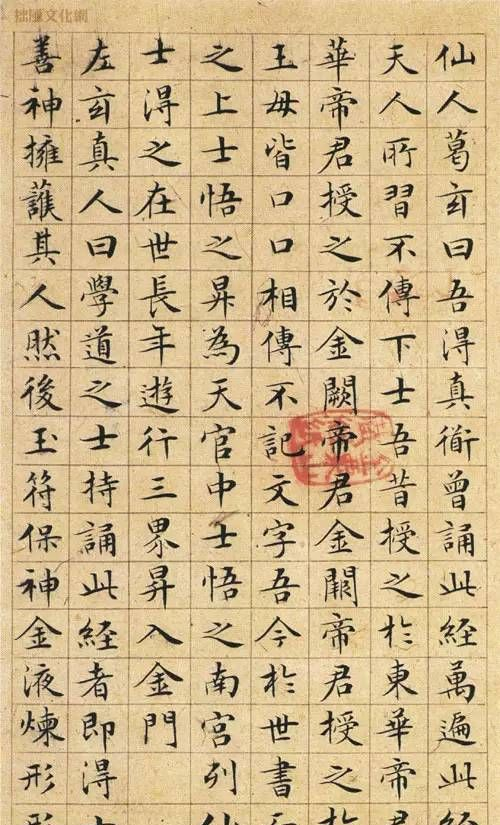 拙風文化網
仙人葛玄曰吾得真衜曾誦此經萬遍此經
天人所習不傳下士吾昔授之於東華帝君
華帝君授之於金闕帝君金闕帝君授之於
王母皆口口相傳不記文字吾今於世書
之上士悟之昇為天官中士悟之南宮列仙
士得之在世長年遊行三界昇入金門
左玄真人曰學道之士持誦此經者即得
善神擁護其人然後玉符保神金液煉形形